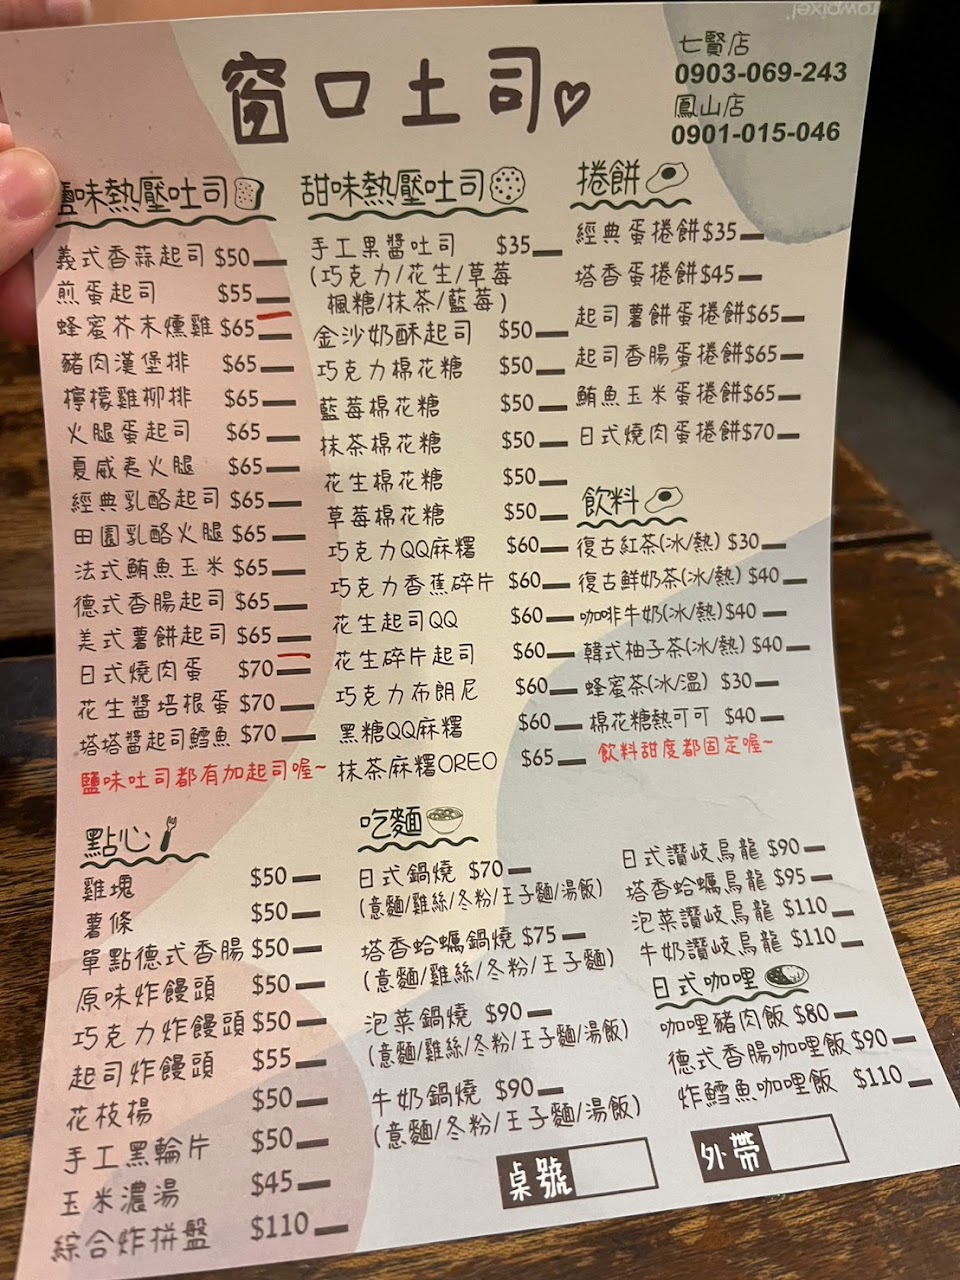 rawpixel
窗口土司
七賢店
0903-069-243
鳳山店
0901-015-046
鹽味熱壓吐司
義式香蒜起司 $50
煎蛋起司 $55
蜂蜜芥末燻雞 $65
豬肉漢堡排 $65
檸檬雞柳排 $65
火腿蛋起司 $65
夏威夷火腿 $65
經典乳酪起司 $65
田園乳酪火腿 $65
法式鮪魚玉米 $65
德式香腸起司 $65
美式薯餅起司 $65
日式燒肉蛋 $70
花生醬培根蛋 $70
塔塔醬起司鱈魚 $70
鹽味吐司都有加起司喔~
甜味熱壓吐司
手工果醬吐司 $35
(巧克力/花生/草莓
楓糖/抹茶/藍莓)
金沙奶酥起司 $50
巧克力棉花糖 $50
藍莓棉花糖 $50
抹茶棉花糖 $50
花生棉花糖 $50
草莓棉花糖 $50
巧克力QQ麻糬 $60
巧克力香蕉碎片 $60
花生起司QQ $60
花生碎片起司 $60
巧克力布朗尼 $60
黑糖QQ麻糬 $60
抹茶麻糬OREO $65
捲餅
經典蛋捲餅$35
塔香蛋捲餅$45
起司薯餅蛋捲餅$65
起司香腸蛋捲餅$65
鮪魚玉米蛋捲餅$65
日式燒肉蛋捲餅$70
飲料
復古紅茶(冰/熱) $30
復古鮮奶茶(冰/熱) $40
咖啡牛奶(冰/熱)$40
韓式柚子茶(冰/熱) $40
蜂蜜茶(冰/溫) $30
棉花糖熱可可 $40
飲料甜度都固定喔~
點心
雞塊 $50
薯條 $50
單點德式香腸 $50
原味炸饅頭 $50
巧克力炸饅頭 $50
起司炸饅頭 $55
花枝楊 $50
手工黑輪片 $50
玉米濃湯 $45
綜合炸拼盤 $110
吃麵
日式鍋燒 $70
(意麵/雞絲/冬粉/王子麵/湯飯)
塔香蛤蠣鍋燒 $75
(意麵/雞絲/冬粉/王子麵)
泡菜鍋燒 $90
(意麵/雞絲/冬粉/王子麵/湯飯)
牛奶鍋燒 $90
(意麵/冬粉/王子麵/湯飯)
日式讚岐烏龍 $90
塔香蛤蠣烏龍 $95
泡菜讚岐烏龍 $110
牛奶讚岐烏龍 $110
日式咖哩
咖哩豬肉飯 $80
德式香腸咖哩飯 $90
炸鱈魚咖哩飯 $110
桌號
外帶